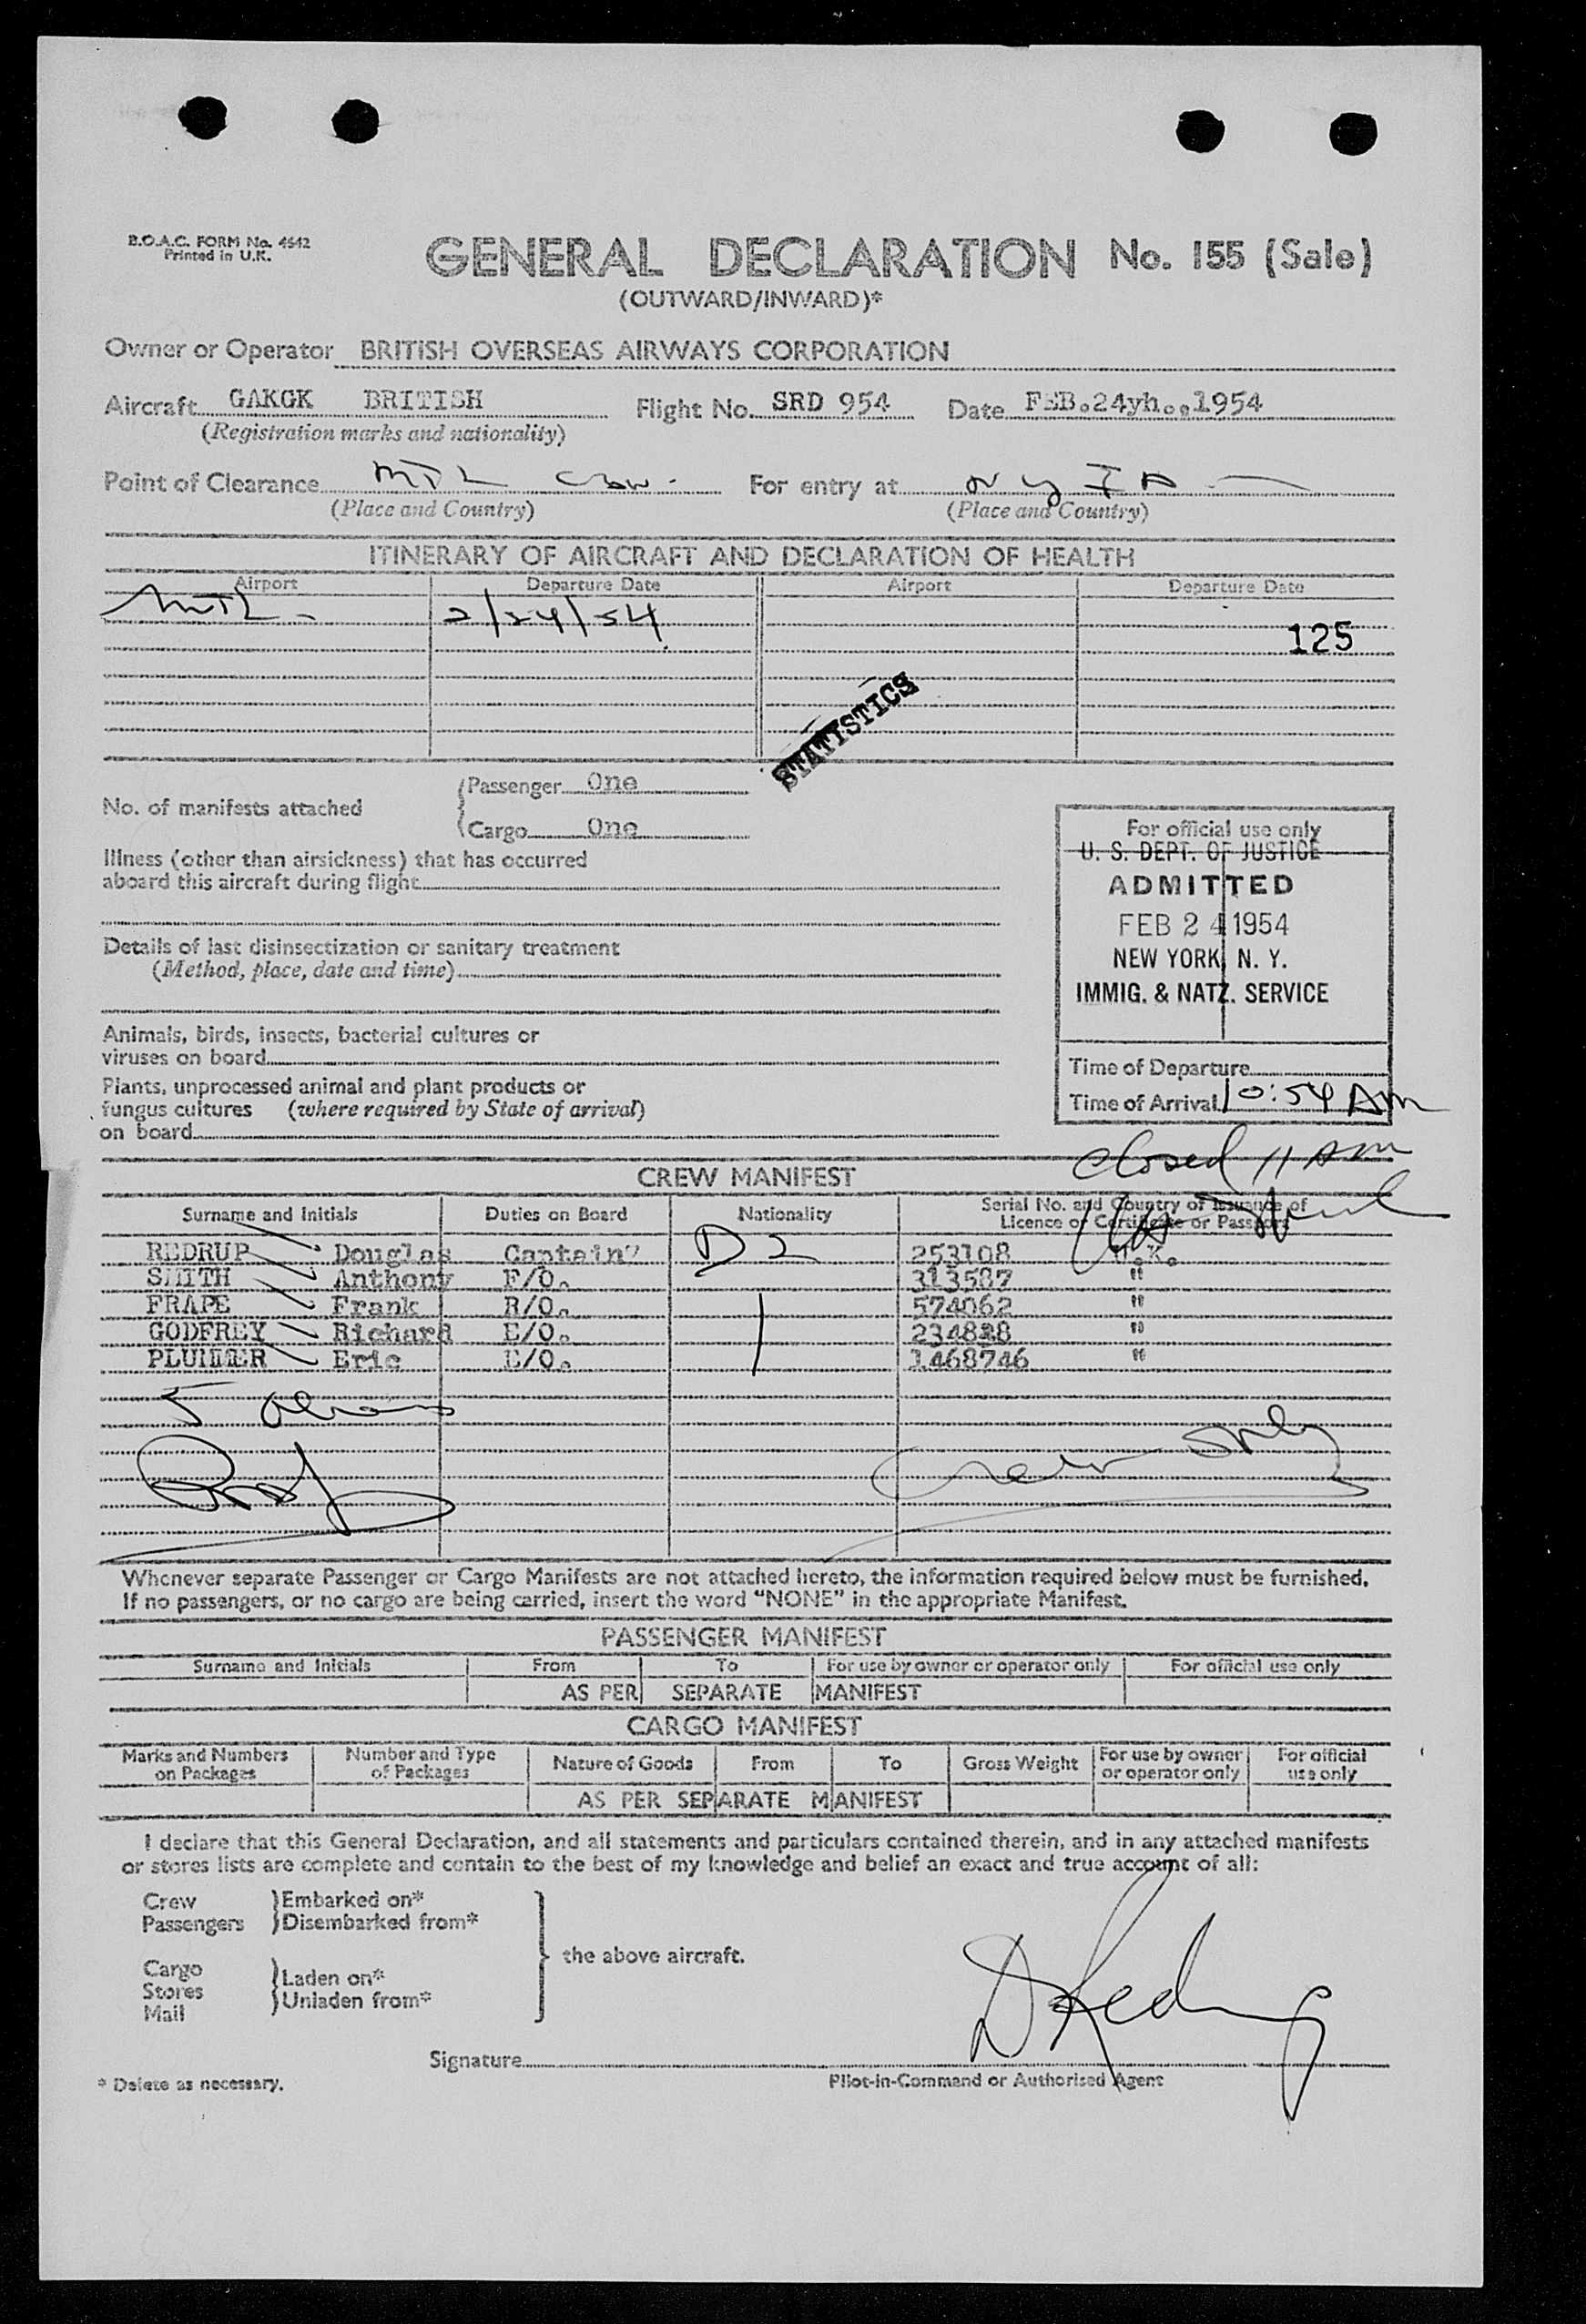 B.O.A.C. FORM No. 4642
Printed in U.K.
GENERAL DECLARATION No. 155 (Sale)
(OUTWARD/INWARD)*
Owner or Operator BRITISH OVERSEAS AIRWAYS CORPORATION
Aircraft GAKGK BRITISH Flight No. SRD 954 Date FEB.24yh.,1954
(Registration marks and nationality)
Point of Clearance MTL For entry at N Y I A
(Place and Country) (Place and Country)
ITINERARY OF AIRCRAFT AND DECLARATION OF HEALTH
Airport Departure Date Airport Departure Date
MTL 2/24/54
125
STATISTICS
No. of manifests attached
Passenger One
Cargo One
Illness (other than airsickness) that has occurred
aboard this aircraft during flight
Details of last disinsectization or sanitary treatment
(Method, place, date and time)
Animals, birds, insects, bacterial cultures or
viruses on board
Plants, unprocessed animal and plant products or
fungus cultures (where required by State of arrival)
on board
For official use only
U. S. DEPT. OF JUSTICE
ADMITTED
FEB 24 1954
NEW YORK, N. Y.
IMMIG. & NATZ. SERVICE
Time of Departure
Time of Arrival 10:54 AM
closed 11 AM
CREW MANIFEST
Surname and Initials Duties on Board Nationality Serial No. and Country of Issuance of
Licence or Certificate or Passport
REDRUP Douglas Captain D2 253108 U.K.
SMITH Anthony F/O. 313587 "
FRAPE Frank R/O. 574062 "
GODFREY Richard E/O. 234828 "
PLUMMER Eric E/O. 1468746 "
5 aliens
Crew only
Whenever separate Passenger or Cargo Manifests are not attached hereto, the information required below must be furnished.
If no passengers, or no cargo are being carried, insert the word "NONE" in the appropriate Manifest.
PASSENGER MANIFEST
Surname and Initials From To For use by owner or operator only For official use only
AS PER SEPARATE MANIFEST
CARGO MANIFEST
Marks and Numbers on Packages Number and Type of Packages Nature of Goods From To Gross Weight For use by owner or operator only For official use only
AS PER SEPARATE MANIFEST
I declare that this General Declaration, and all statements and particulars contained therein, and in any attached manifests
or stores lists are complete and contain to the best of my knowledge and belief an exact and true account of all:
Crew Embarked on*
Passengers Disembarked from*
the above aircraft.
Cargo
Stores Laden on*
Mail Unladen from*
Signature
* Delete as necessary. Pilot-in-Command or Authorised Agent